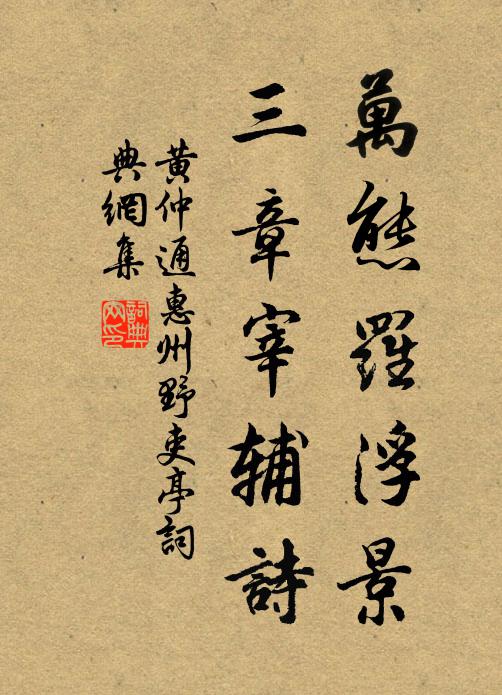 萬態羅浮景
三章宰輔詩
黃仲通惠州野吏亭詞
典網集
詞典網印